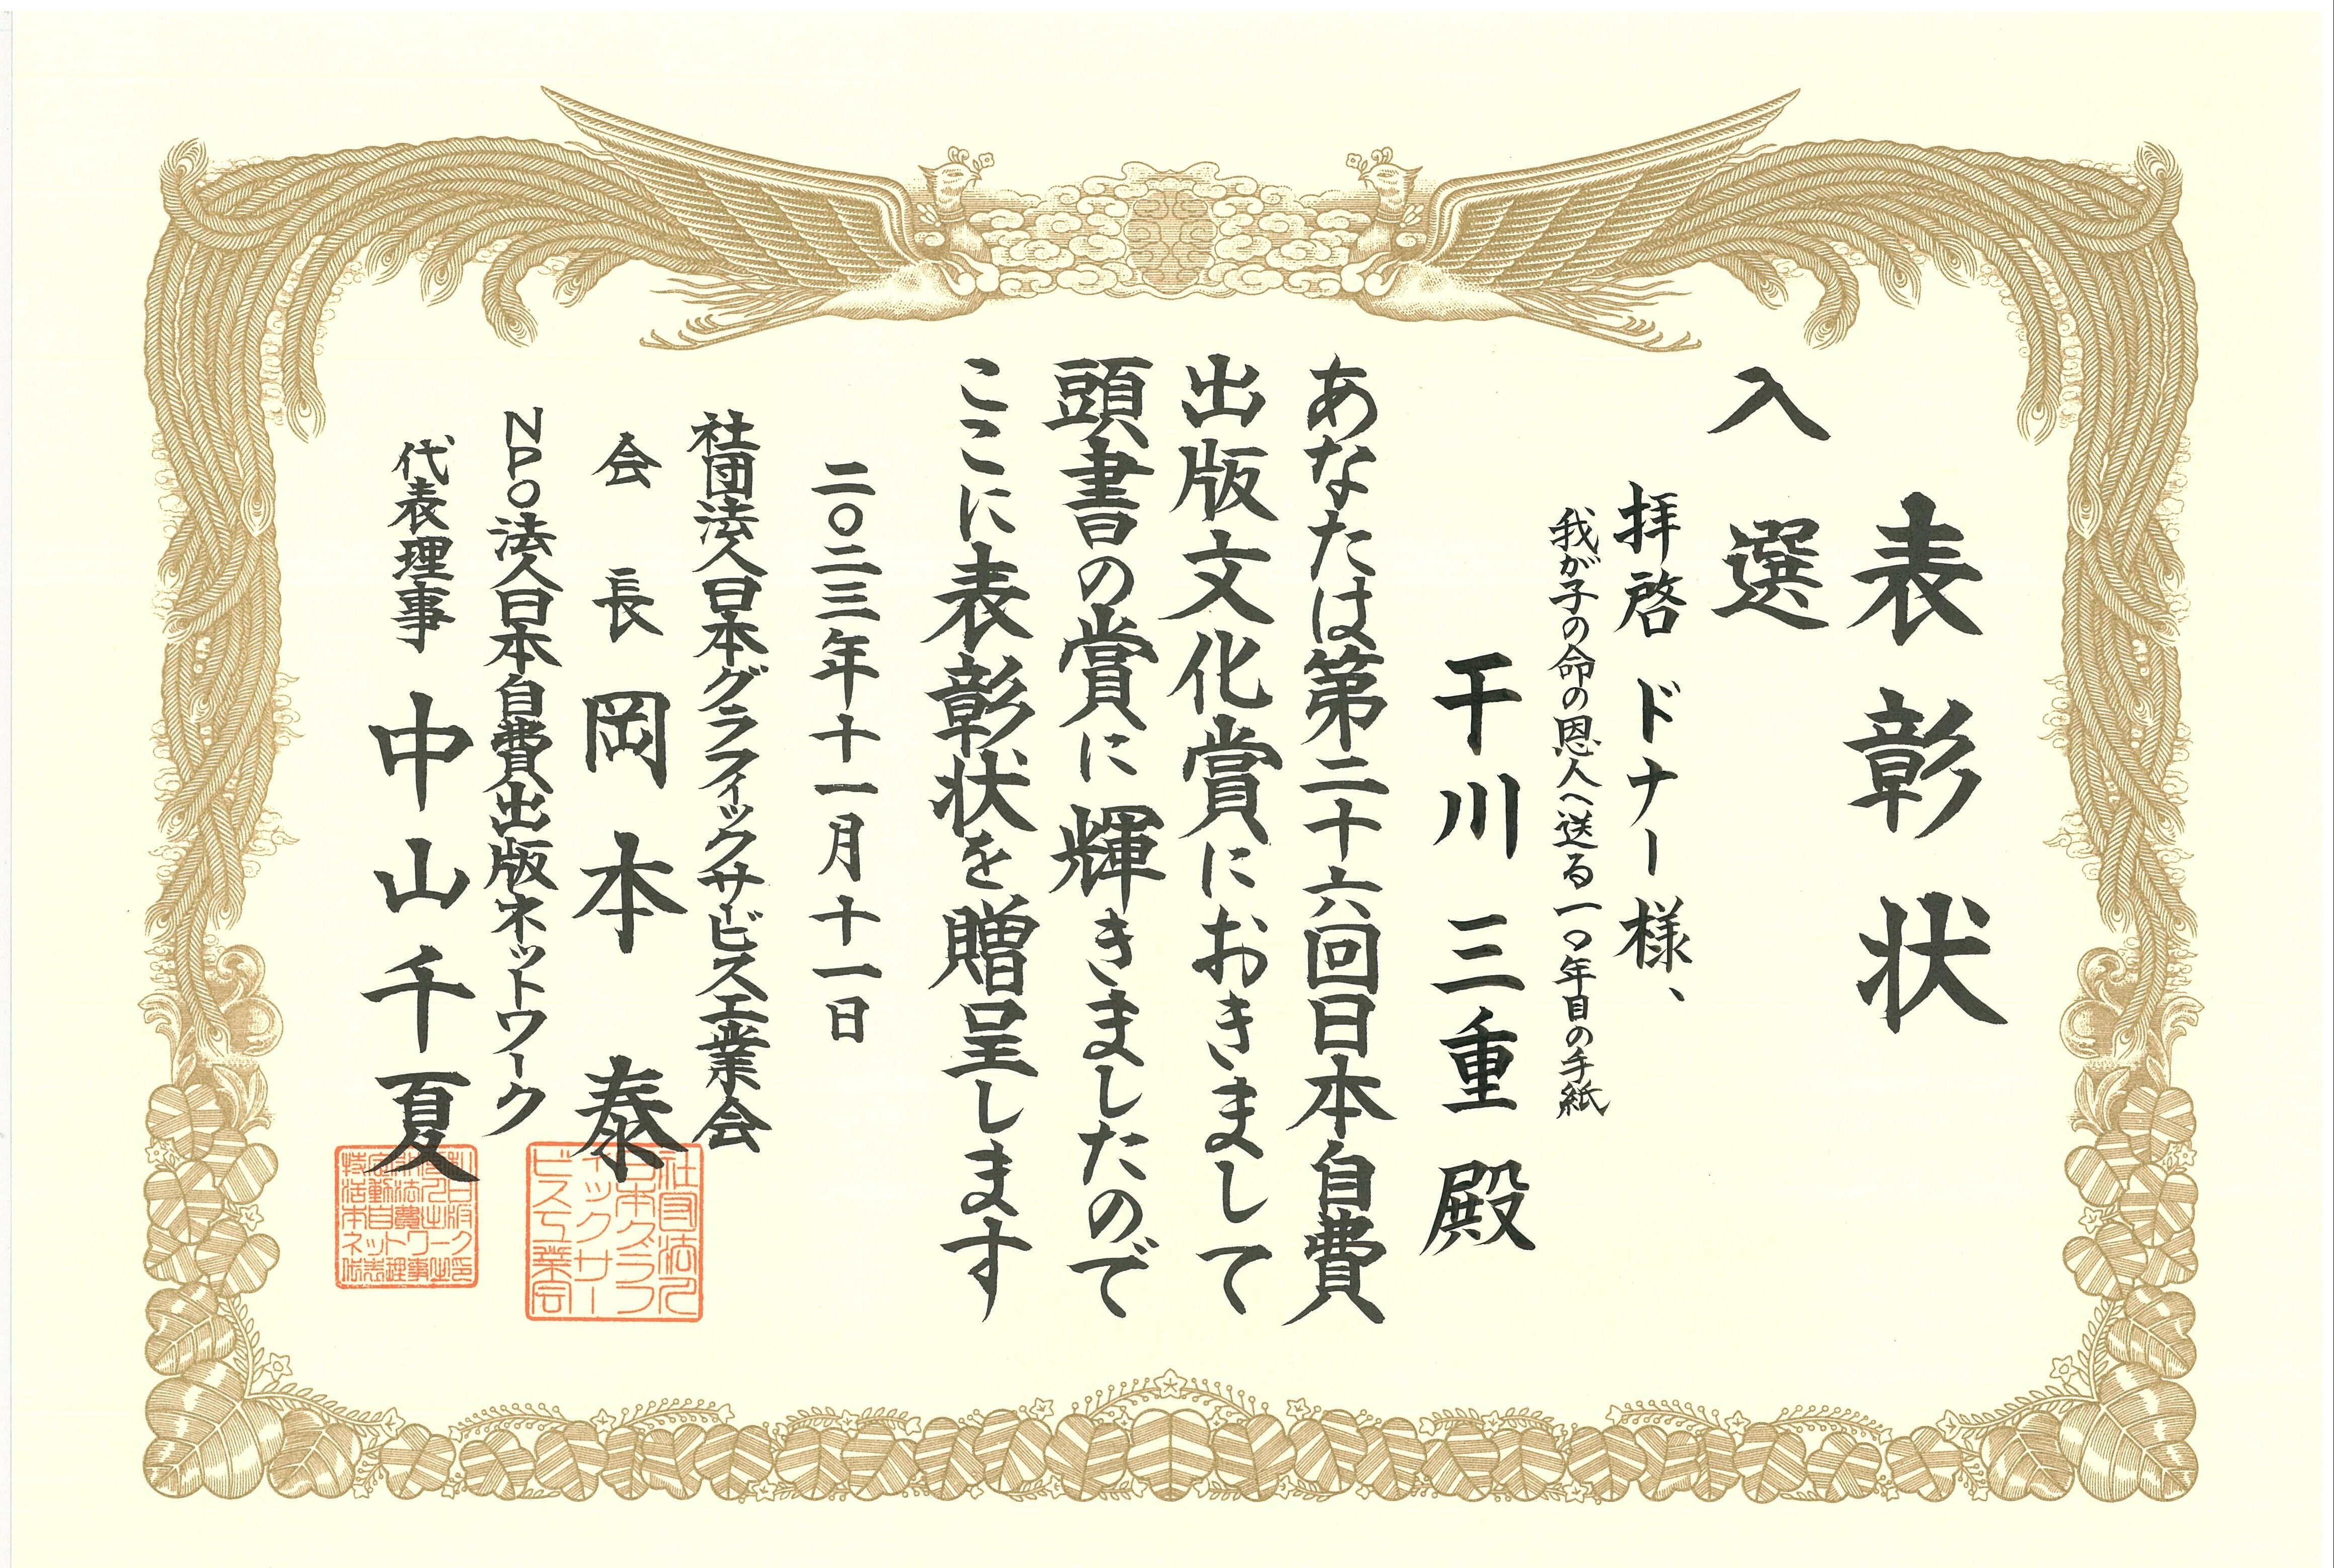 表彰状
入選
拝啓 ドナー様、
我が子の命の恩人へ送る一〇年目の手紙
干川三重殿
あなたは第二十六回日本自費
出版文化賞におきまして
頭書の賞に輝きましたので
ここに表彰状を贈呈します
二〇二三年十一月十一日
社団法人日本グラフィックサービス工業会
会長 岡本 泰
NPO法人日本自費出版ネットワーク
代表理事 中山千夏
社団法人
日本グラフ
ィックサー
ビス工業会